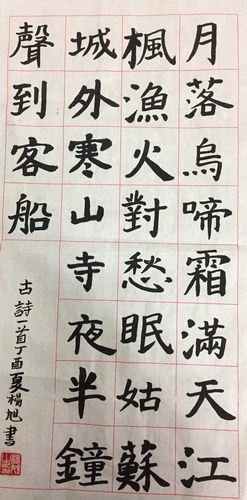 月落烏啼霜滿天江
楓漁火對愁眠姑蘇
城外寒山寺夜半鐘
聲到客船
古詩一首丁酉夏楊旭書